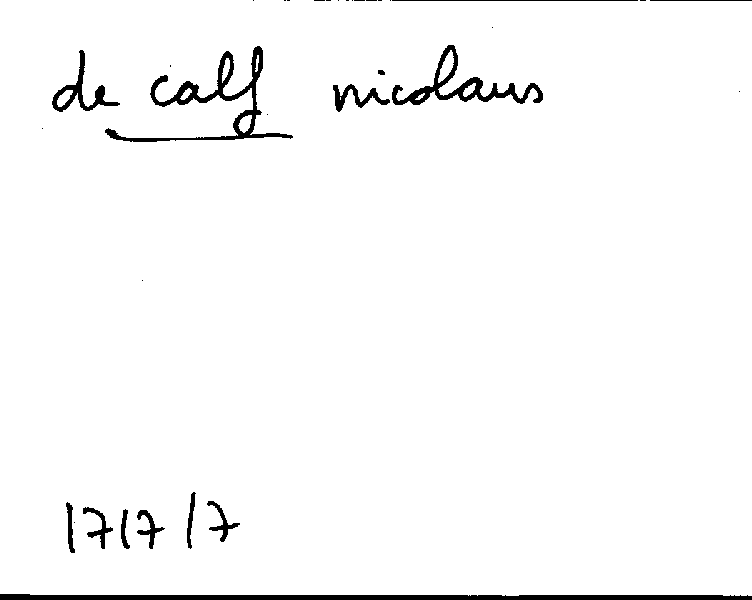 de calf nicolaus
1717/7